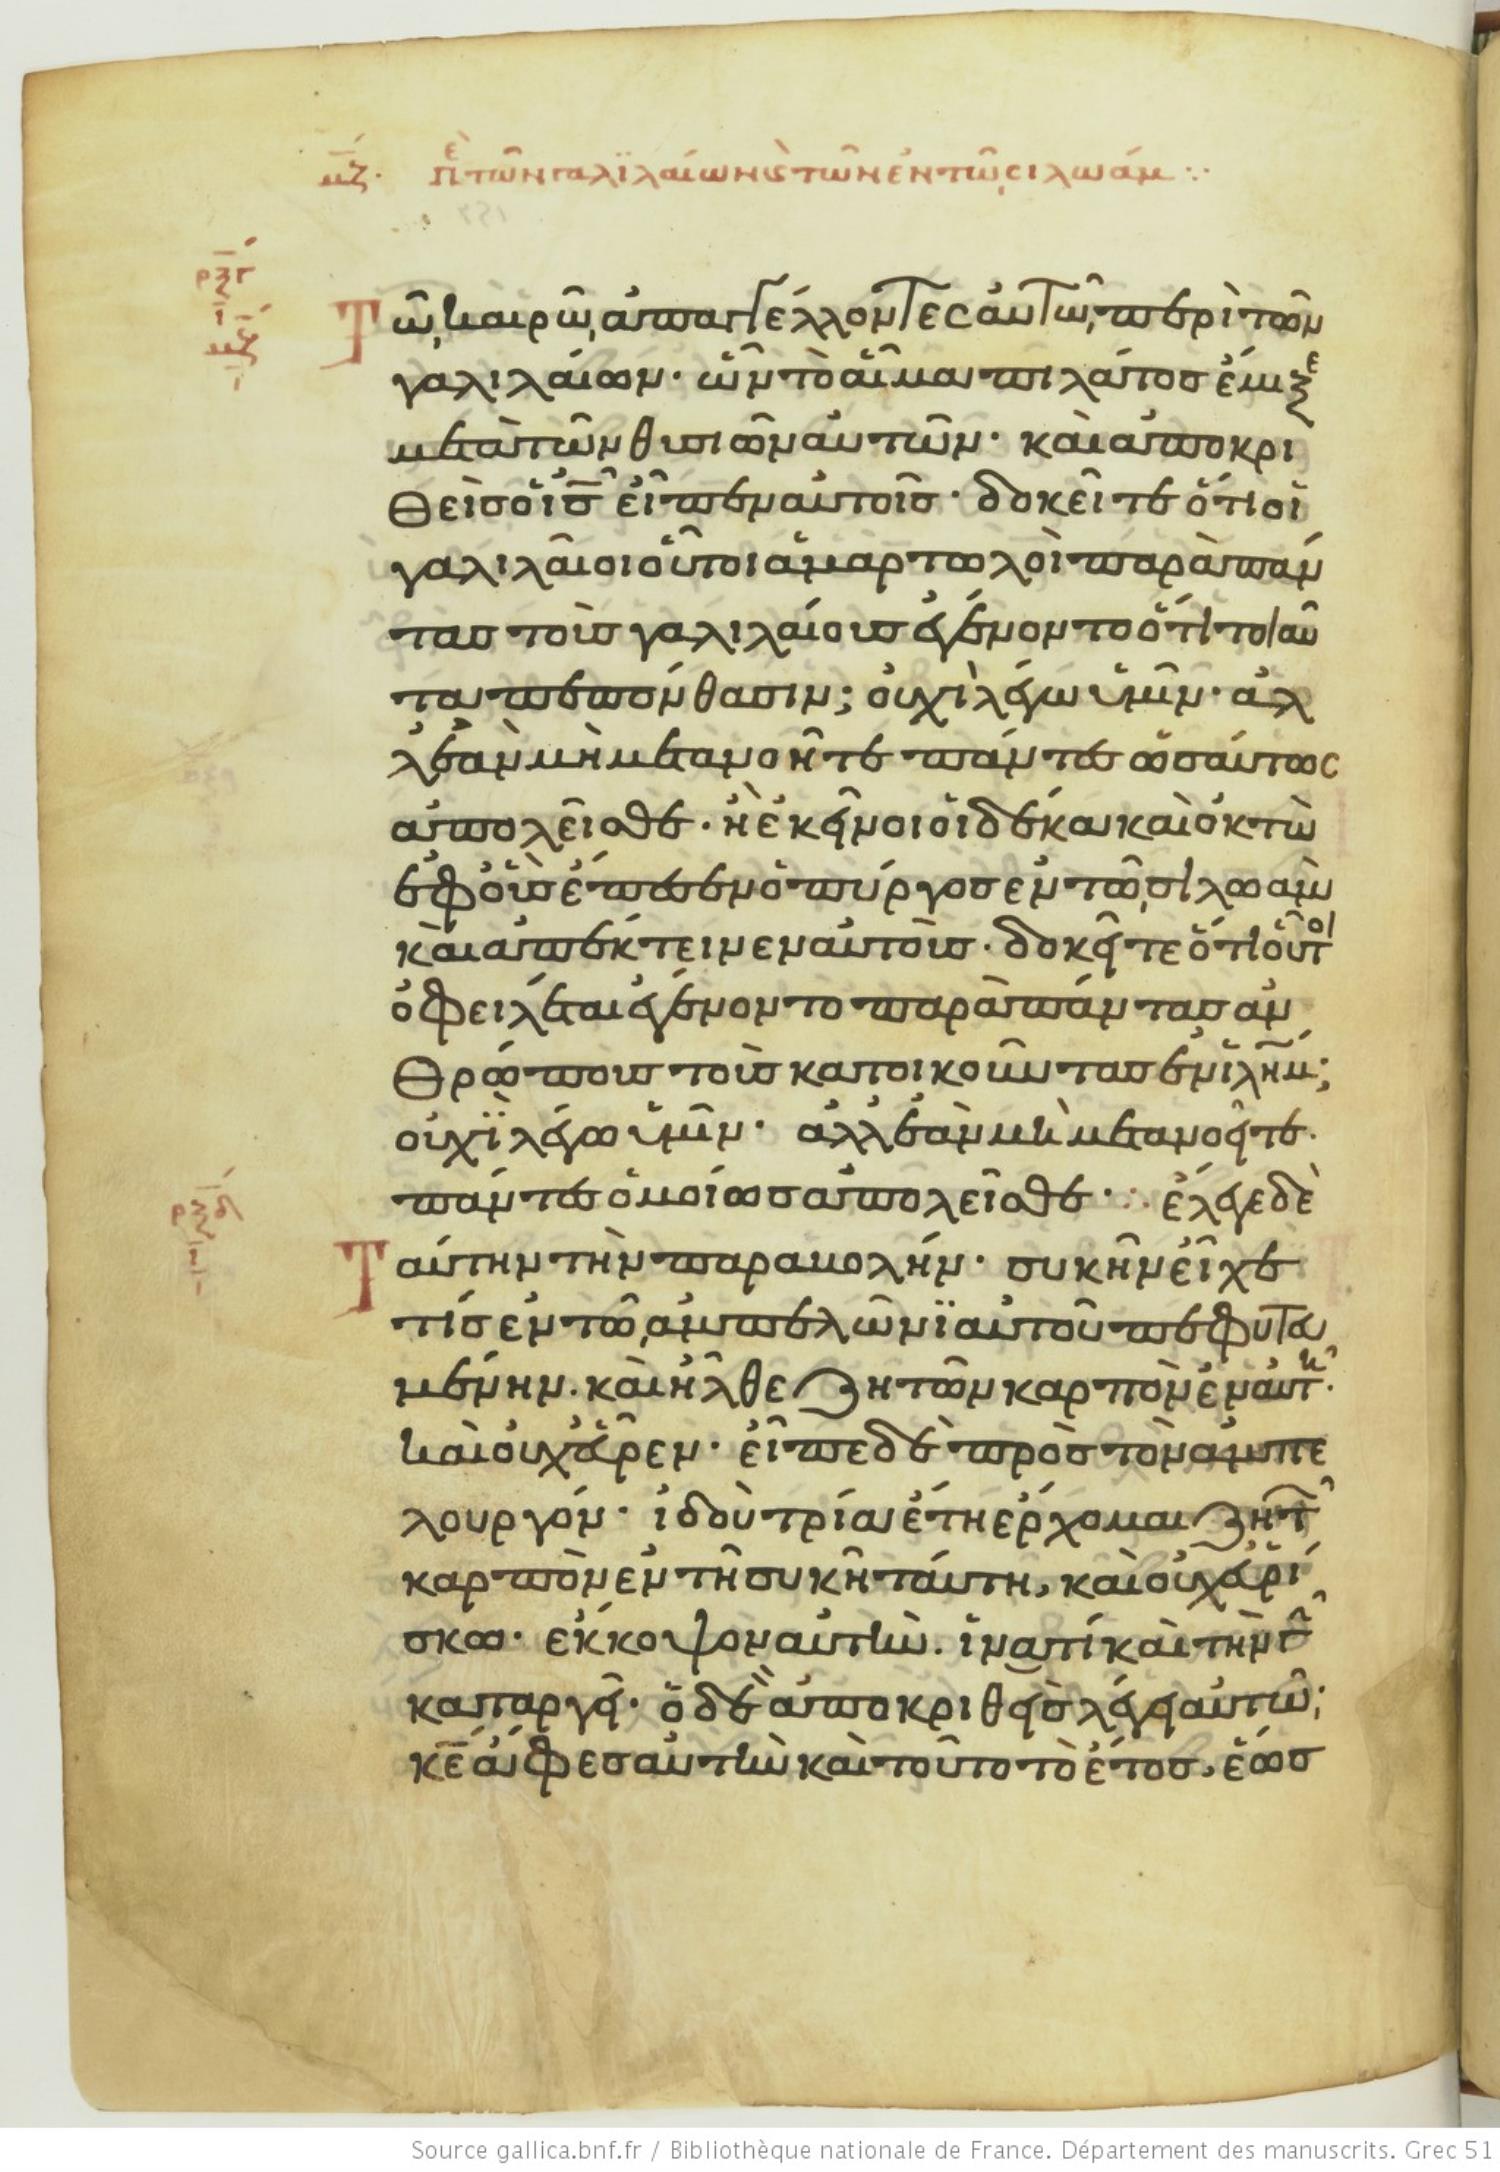 μζ· πε τῶν γαλϊλαίων κς τῶν ἐν τῶ, σιλωάμ :·
ρξγ
ι
μζ
Τῶ, καιρῶ, ἀπαγγέλλοντες αὐτῶ, περὶ τῶν
γαλιλαίων· ὧν τὸ αἷμα πιλάτος ἔμιξε
μετὰ τῶν θυσιῶν αὐτῶν· καὶ ἀποκρι
θεὶς ὁ ἰς εἶπεν αὐτοῖς· δοκεῖτε ὅτι οἱ
γαλιλαῖοι οὗτοι ἁμαρτωλοὶ παρὰ πάν
τας τοὺς γαλιλαίους ἐγένοντο ὅτι τοιαῦ
τα πεπόνθασιν; οὐχὶ λέγω ὑμῖν· ἀλ
λ᾽ ἐὰν μὴ μετανοῆτε πάντες ὡσαύτως
ἀπολεῖσθε· ἢ ἐκεῖνοι οἱ δέκα καὶ ὀκτὼ
ἐφ᾽ οὓς ἔπεσεν ὁ πύργος ἐν τῶ, σιλωὰμ
καὶ ἀπέκτεινεν αὐτούς· δοκεῖτε ὅτι οὗτοι
ὀφειλέται ἐγένοντο παρὰ πάντας ἀν
θρώπους τοὺς κατοικοῦντας ἐν ἰλῆμ;
οὐχῒ λέγω ὑμῖν· ἀλλ᾽ ἐὰν μὴ μετανοεῖτε·
πάντες ὁμοίως ἀπολεῖσθε· :· ἔλεγε δὲ
ρξδ
ι
Ταύτην τὴν παραβολήν· συκῆν εἶχε
τίς ἐν τῶ, ἀμπελῶνϊ αὐτοῦ πεφυτευ
μένην· καὶ ἦλθε ζητῶν καρπὸν ἐν αὐτῆ·
καὶ οὐχ εὗρεν· εἶπε δὲ πρὸς τὸν ἀμπε
λουργόν· ἰδοὺ τρία ἔτη ἔρχομαι ζητῶν
καρπὸν ἐν τῆ συκῆ ταύτη, καὶ οὐχ εὑρί
σκω· ἔκκοψον αὐτὴν· ἵνα τί καὶ τὴν γῆν
καταργεῖ· ὁ δὲ ἀποκριθεὶς λέγει αὐτῶ;
κε ἄφες αὐτὴν καὶ τοῦτο τὸ ἔτος, ἕως
Source gallica.bnf.fr / Bibliothèque nationale de France. Département des manuscrits. Grec 51